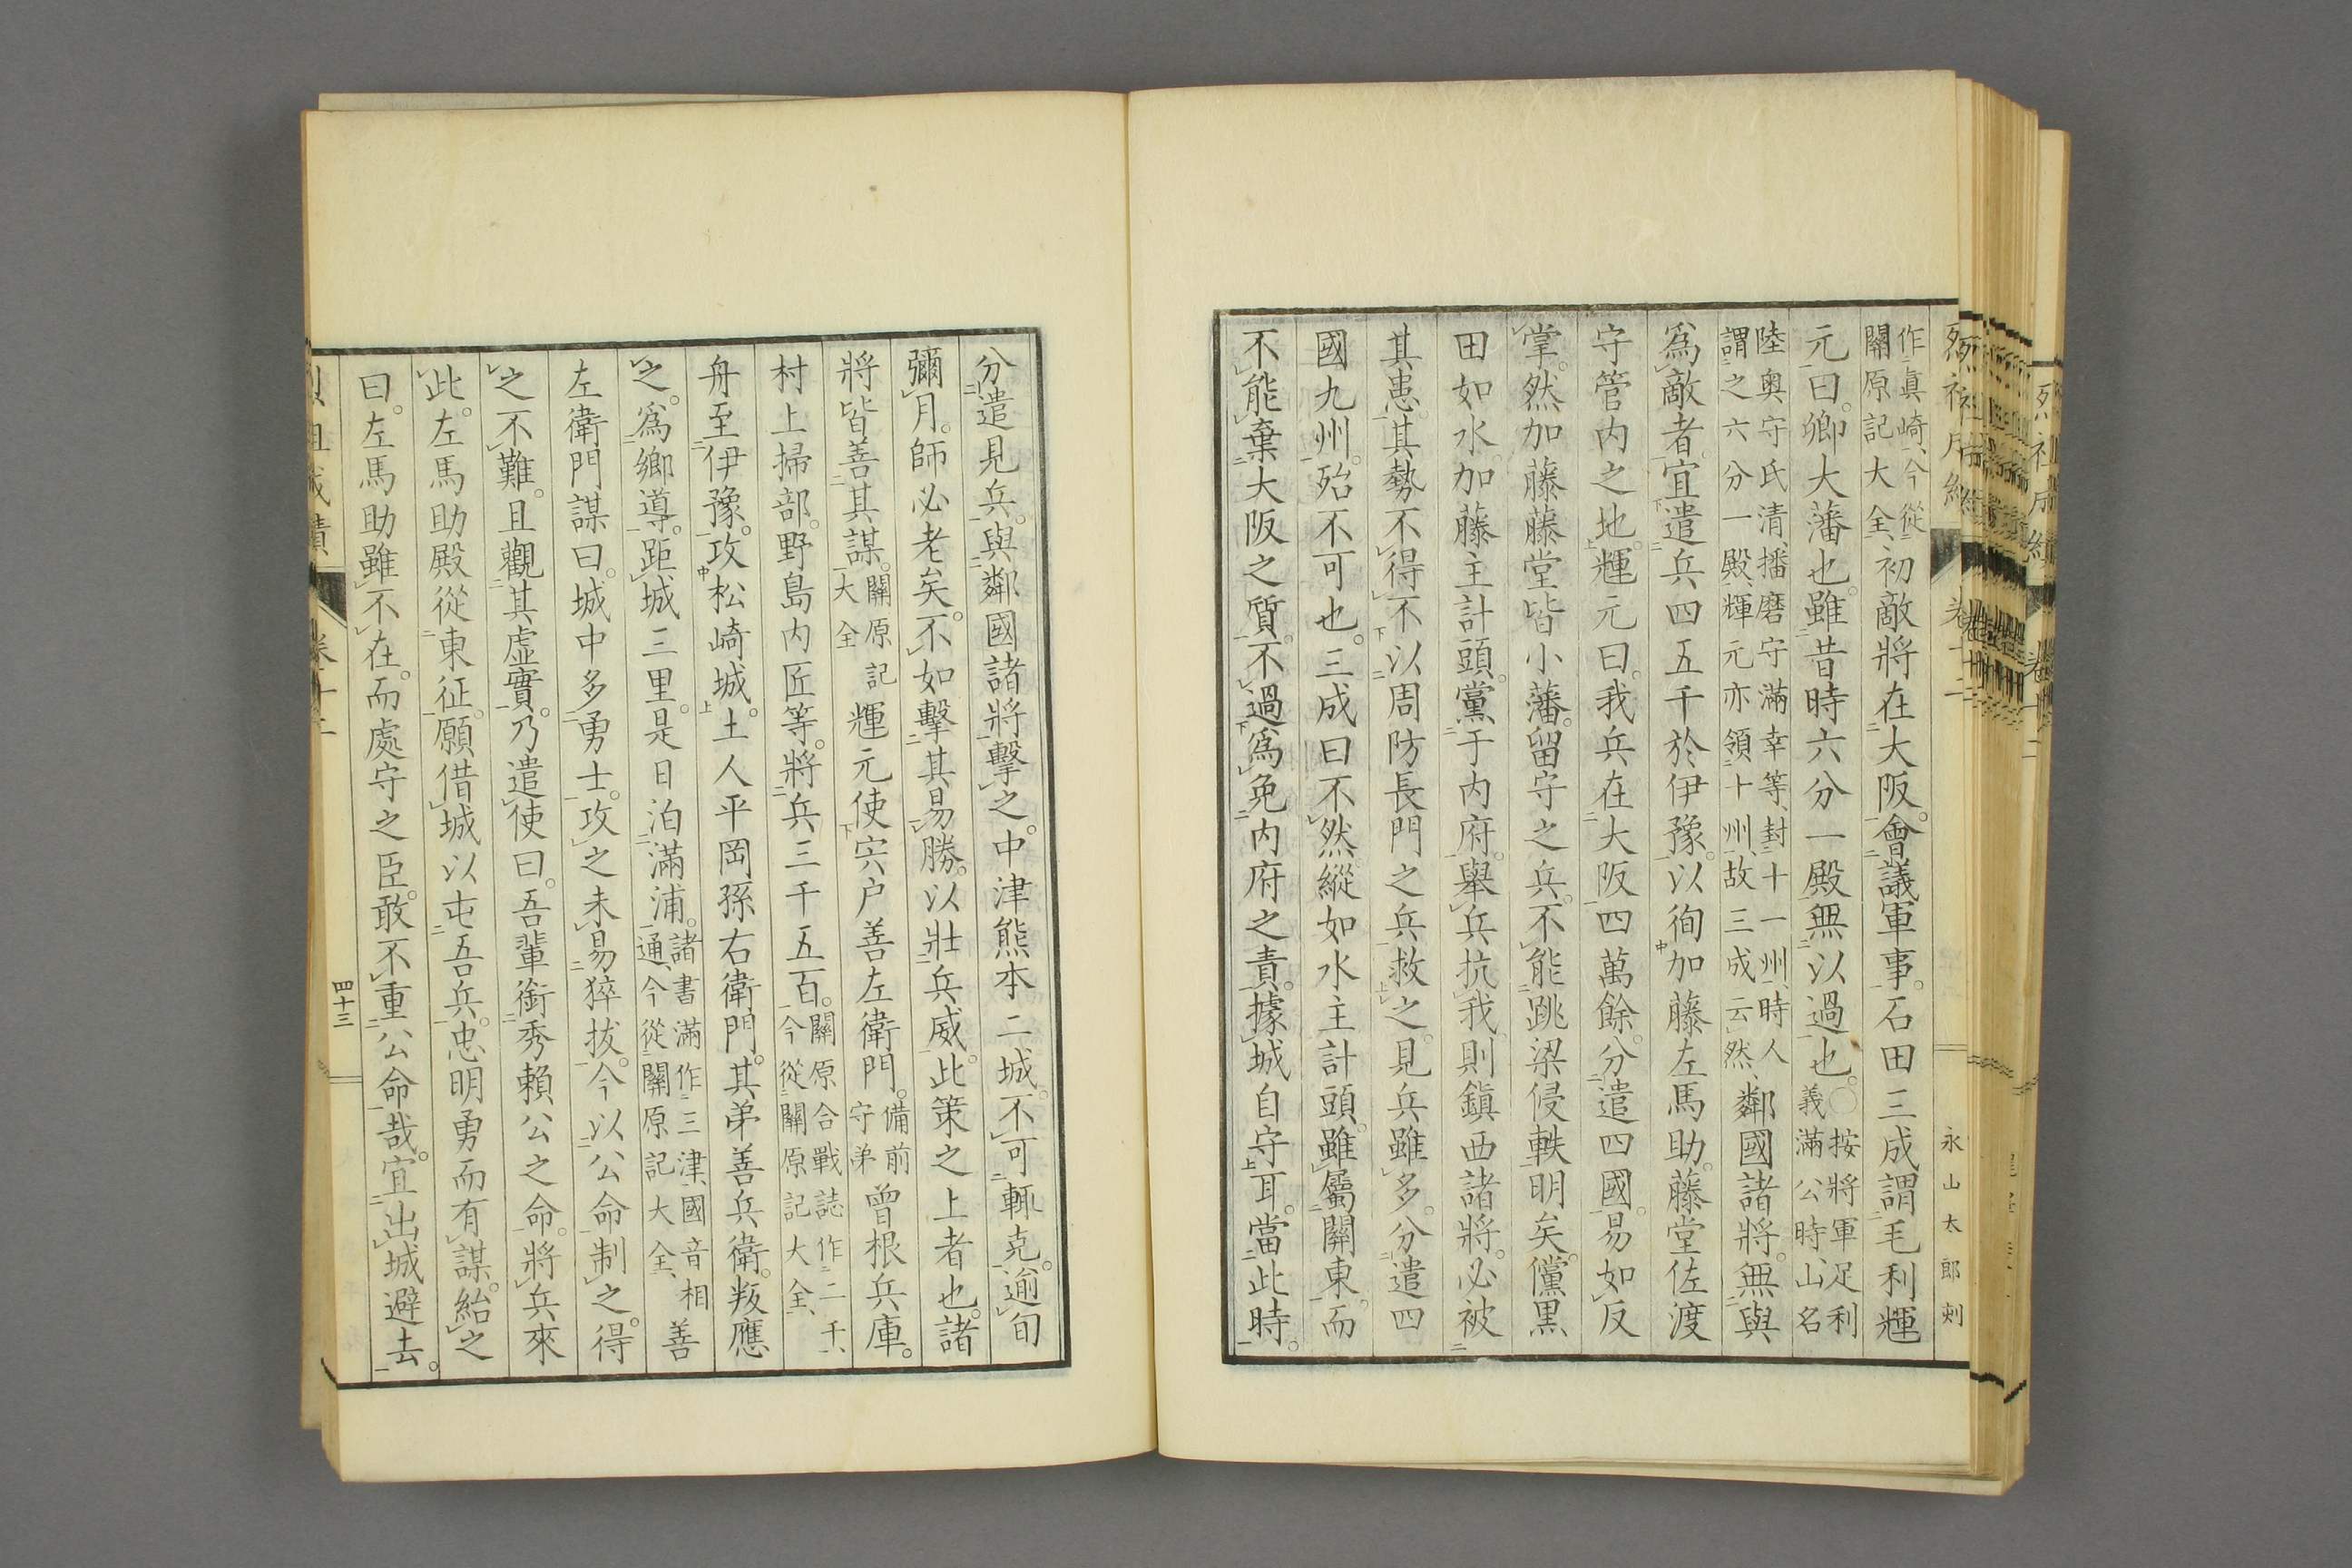 作眞崎、今從
關原記大全、初敵將在大阪。會議軍事。石田三成謂毛利輝
元曰。卿大藩也。雖昔時六分一殿無以過也。○按將軍足利
義滿公時、山名
陸奥守氏清、播磨守滿幸等、封十一州、時人
謂之六分一殿、輝元亦領十州、故三成云然、鄰國諸將。無與
爲敵者。宜遣兵四五千於伊豫。以徇加藤左馬助。藤堂佐渡
守管内之地。輝元曰。我兵在大阪四萬餘。分遣四國。易如反
掌。然加藤藤堂皆小藩。留守之兵。不能跳梁侵軼明矣。儻黑
田如水。加藤主計頭。黨于内府。舉兵抗我。則鎭西諸將。必被
其患。其勢不得不以周防長門之兵救之。見兵雖多。分遣四
國九州。殆不可也。三成曰不然。縱如水主計頭。雖屬關東。而
不能棄大阪之質。不過爲免内府之責。據城自守耳。當此時。
永山太郎剡
分遣見兵。與鄰國諸將擊之。中津熊本二城。不可輒克。逾旬
彌月。師必老矣。不如擊其易勝。以壯兵威。此策之上者也。諸
將皆善其謀。關原記
大全輝元使宍户善左衛門。備前
守弟曾根兵庫。
村上掃部。野島内匠等。將兵三千五百。關原合戰誌作二千、
今從關原記大全、
舟至伊豫。攻松崎城。土人平岡孫右衛門。其弟善兵衛。叛應
之。爲鄉導。距城三里。是日泊滿浦。諸書滿作三津、國音相
通、今從關原記大全、善
左衛門謀曰。城中多勇士。攻之未易猝拔。今以公命制之。得
之不難。且觀其虛實。乃遣使曰。吾輩銜秀賴公之命。將兵來
此。左馬助殿從東征。願借城以屯吾兵。忠明勇而有謀。紿之
曰。左馬助雖不在。而處守之臣。敢不重公命哉。宜出城避去。
卷十二
四十三